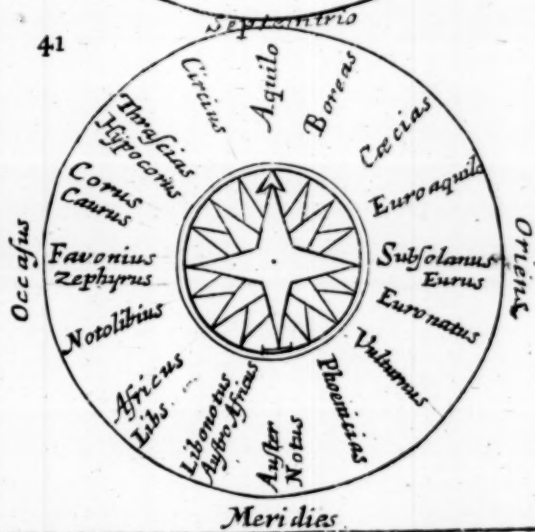 Septemtrio
41
Circius
Aquilo
Boreas
Cæcias
Euroaquilo
Subſolanus
Eurus
Euronatus
Vulturnus
Phoenicias
Auſter
Notus
Libonotus
Auſtro Africus
Africus
Libs
Notolibius
Favonius
Zephyrus
Corus
Caurus
Thraſcias
Hypocorius
Occaſus
Oriens
Meridies